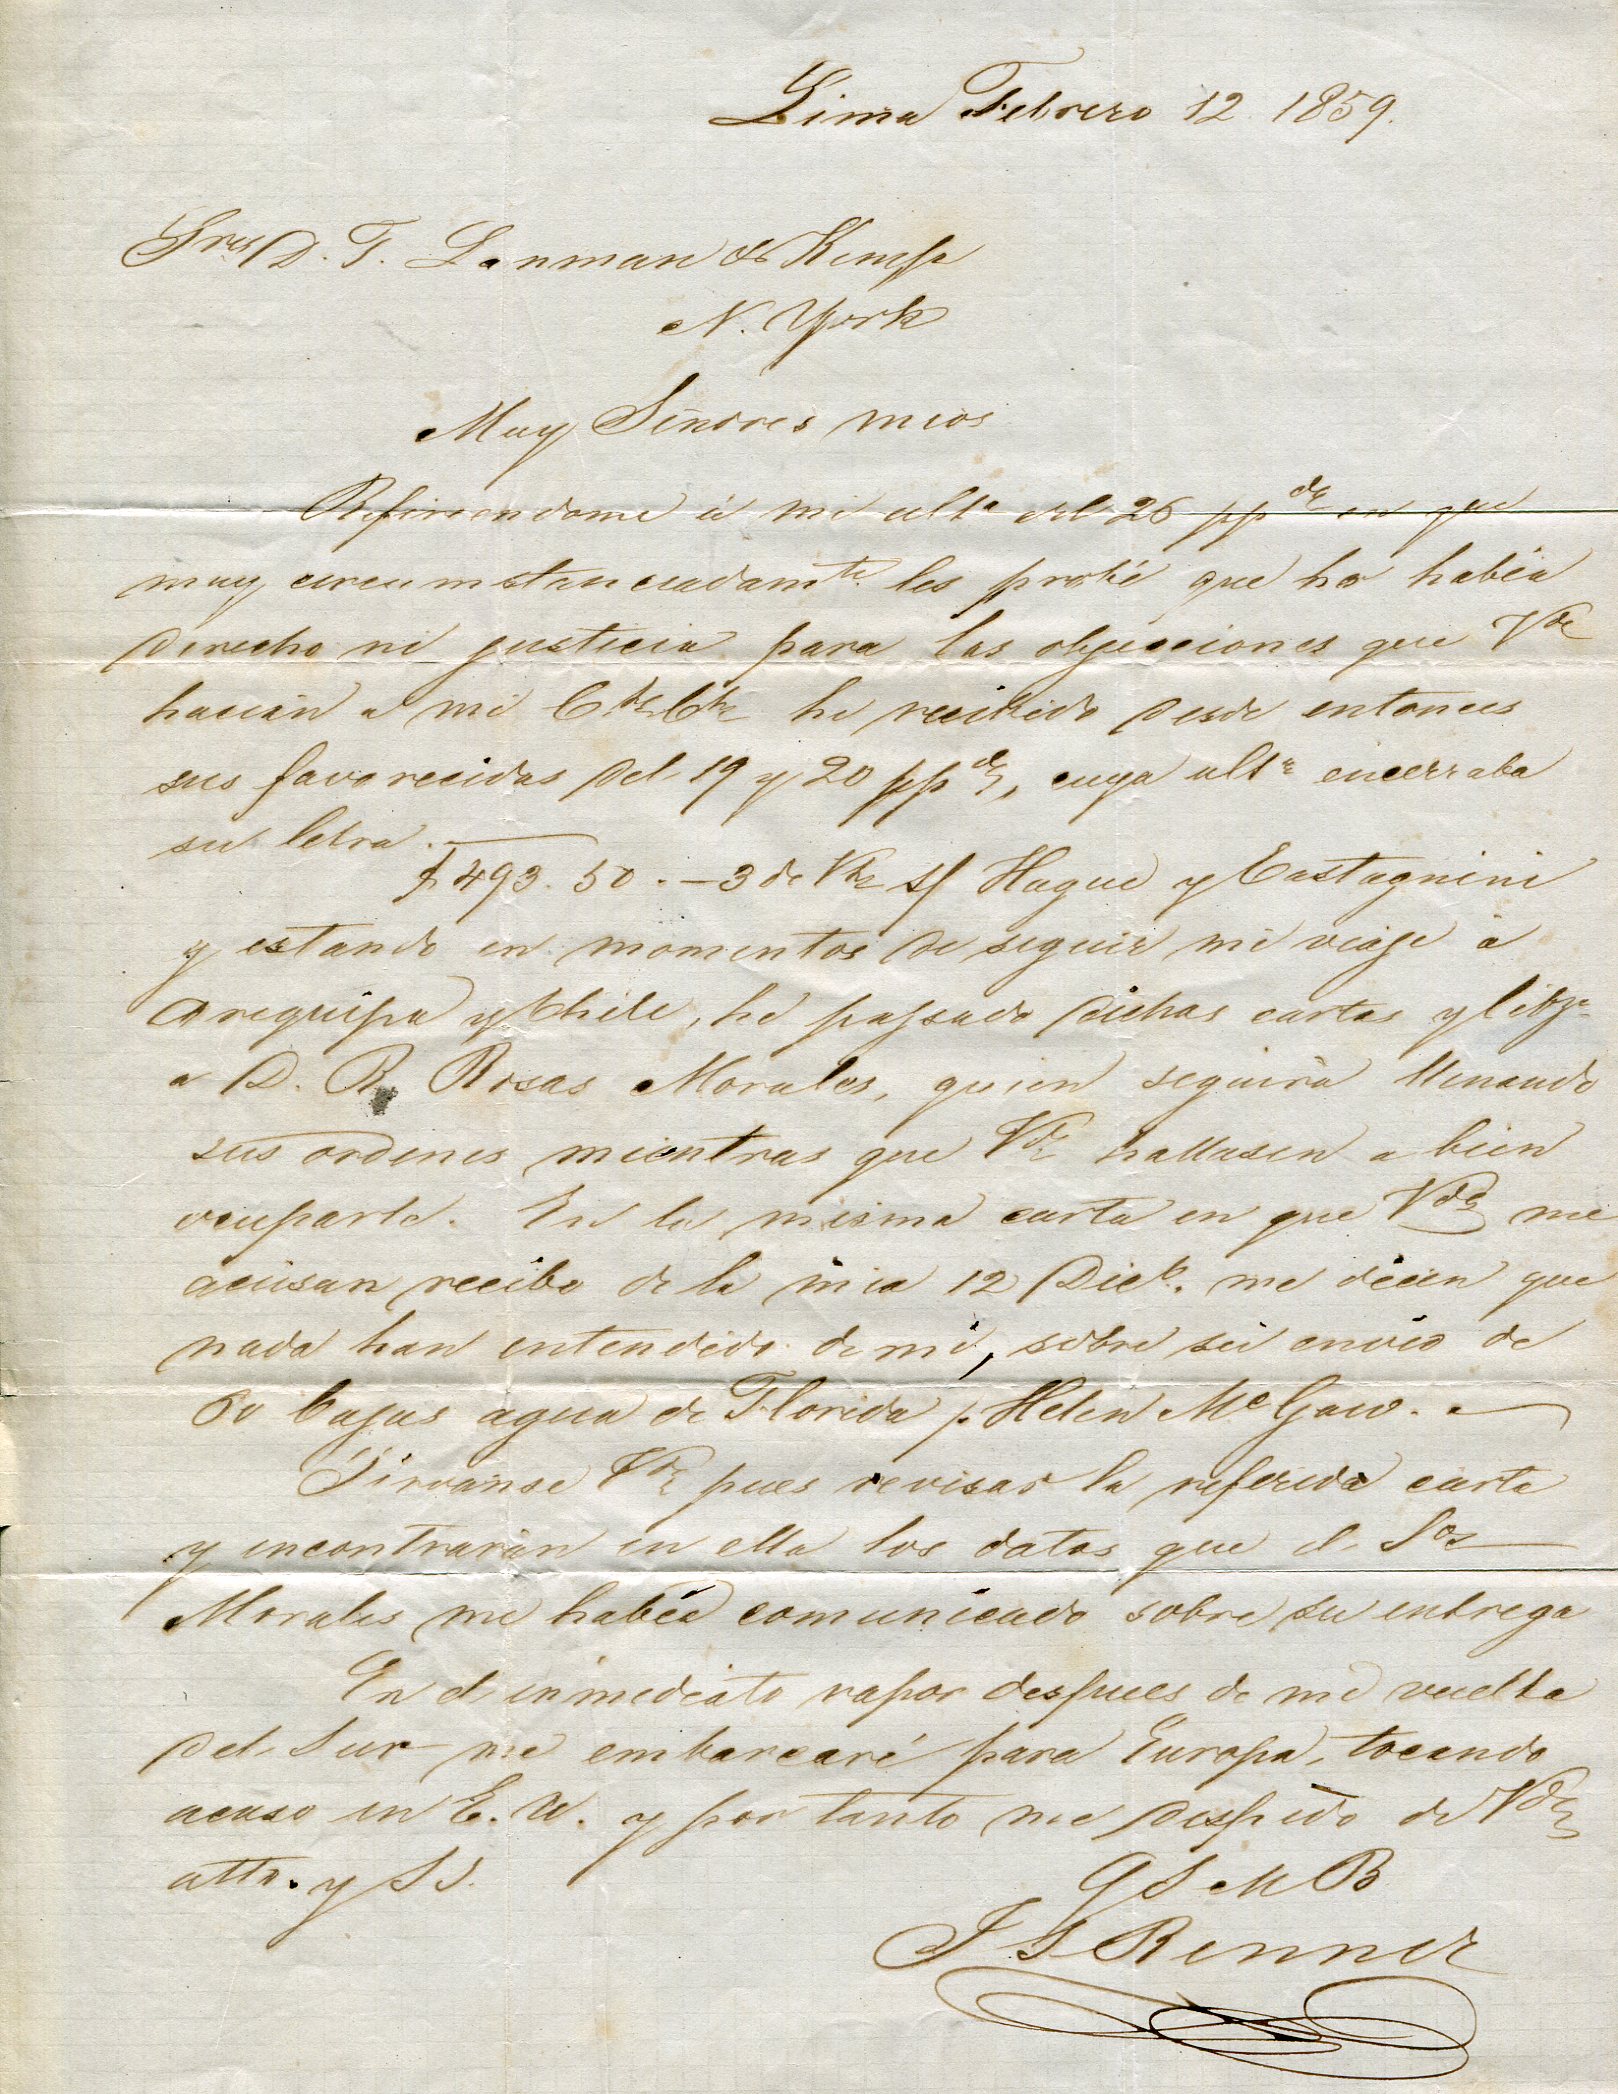 Lima Febrero 12. 1859.
Sres D. T. Lanman & Kemp
N. York
Muy Señores mios
Refiriendome á mi ulta del 26 ppdo en que
muy circumstanciadamte les probé que no habia
derecho ni justicia para las objecciones que Vds
hacian a mi he recibido desde entonces
sus favorecidas del 19 y 20 ppdos, cuya ulta encerraba
su letra.
$ 493. 50. — 3 d/ Vta s/ Hague y Castagnini
y estando en momentos de seguir mi viaje á
Arequipa y Chile, he passado dichas cartas y
a D. R. Rosas Morales, quien seguirá llenando
sus ordenes mientras que Vds hallasen a bien
ocuparle. En la misma carta en que Vds me
acusan recibo de la mia 12 Dice. me dicen que
nada han entendido de mi, sobre su envio de
60 Cajas agua de Florida p. Helen Mc Gaw.
Sirvanse Vds pues revisar la referida carta
y encontrarán en ella los datos que el Sor
Morales me habia comunicado sobre su entrega
En el inmediato vapor despues de mi vuelta
del Sur me embarcaré para Europa, tocando
acaso en E. U. y por tanto me despido de Vds
atto. y S S.
Q S M B
J G Renner